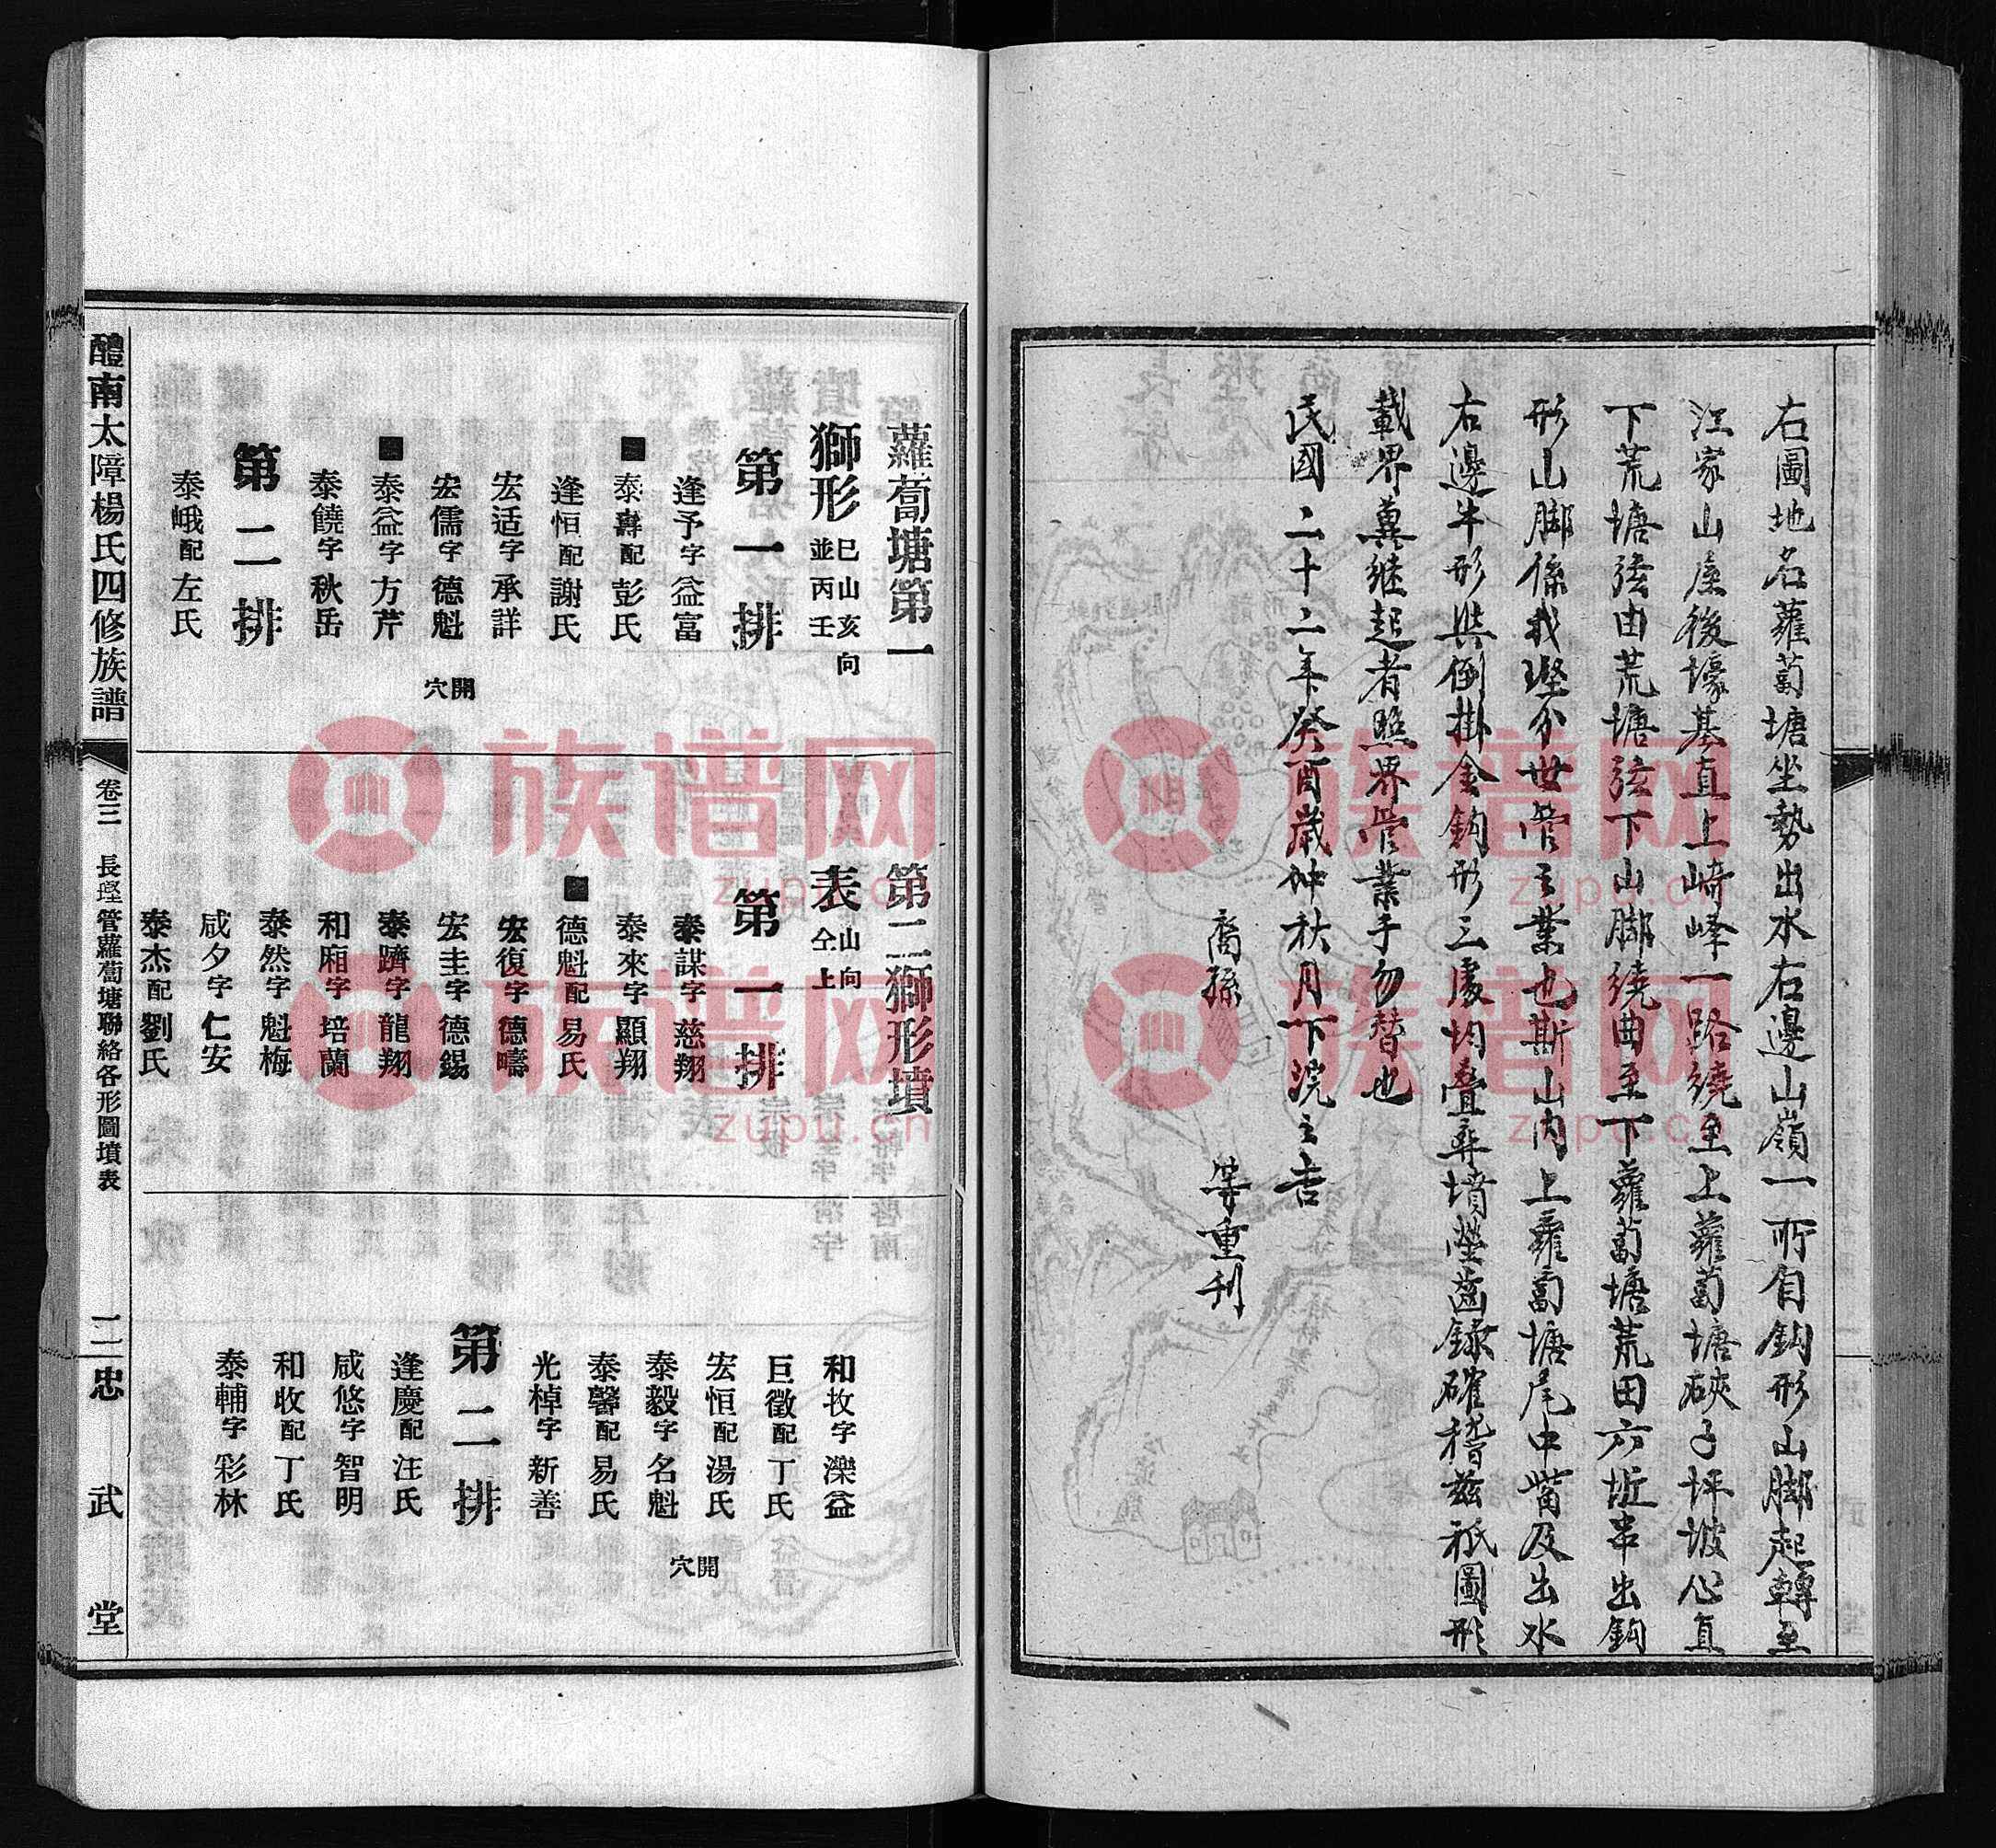 右圖地名蘿蔔塘坐勢出水右邊山嶺一所自鈎形山脚起轉至
江家山屋後壕基直上崎峰一路繞至上蘿蔔塘硤子坪坡心直
下荒塘弦由荒塘弦下山脚繞曲至下蘿蔔塘荒田六坵串出鈎
形山脚係我㙷分世管之業也斯山內上蘿蔔塘尾中嘴及出水
右邊牛形與倒掛金鈎形三處均叠弃墳塋齒錄確稽茲祇圖形
載界冀继起者照界管業手勿替也
民國二十二年癸酉歲仲秋月下浣之吉
裔孫 等重刋
蘿蔔塘第一
獅形 巳山亥向
並丙壬
第一排
逢予字益富
■泰壽配彭氏
逢恒配謝氏
宏适字承詳
宏儒字德魁
■泰益字方芹
泰饒字秋岳
第二排
泰峨配左氏
開穴
第二獅形墳
表 山向
仝上
第一排
泰謀字慈翔
泰來字顯翔
■德魁配易氏
宏復字德疇
宏圭字德錫
泰躋字龍翔
和廂字培蘭
泰然字魁梅
咸夕字仁安
泰杰配劉氏
和牧字濼益
巨徵配丁氏
宏恒配湯氏
泰毅字名魁
泰馨配易氏
光棹字新善
第二排
逢慶配汪氏
咸悠字智明
和收配丁氏
泰輔字彩林
開穴
醴南太障楊氏四修族譜
卷三 長㙷管蘿蔔塘聯絡各形圖墳表
二 忠武堂
族谱网
zupu.cn
族谱网
zupu.cn
族谱网
zupu.cn
族谱网
zupu.cn